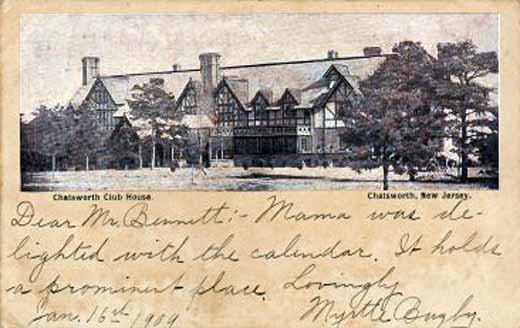 Chatsworth Club House. Chatsworth, New Jersey.
Dear Mr. Bennett:- Mama was de-
lighted with the calendar. It holds
a prominent place. Lovingly
Jan. 16th 1909 Myrtle Bugby.